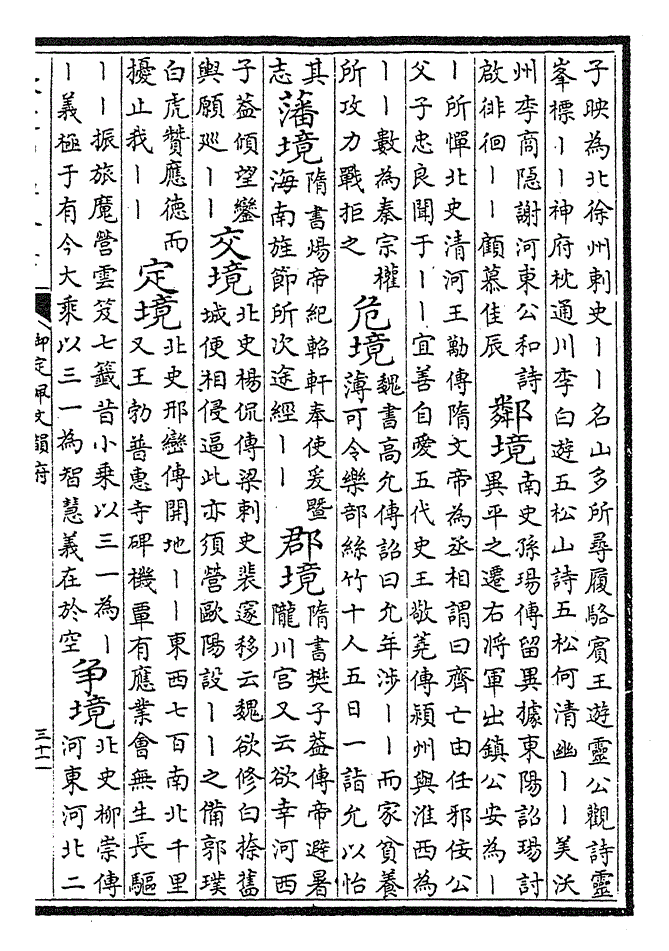 子映為北徐州刺史丨丨名山多所尋履駱賓王遊靈公觀詩靈
峯標丨丨神府枕通川李白遊五松山詩五松何清幽丨丨美沃
州李商隱謝河東公和詩
啟徘徊丨丨顧慕佳辰
鄰境
南史孫瑒傳留異據東陽詔瑒討
異平之遷右將軍出鎮公安為丨
丨所憚北史清河王勱傳隋文帝為丞相謂曰齊亡由任邪佞公
父子忠良聞于丨丨宜善自愛五代史王敬蕘傳潁州與淮西為
丨丨數為秦宗權
所攻力戰拒之
危境
魏書高允傳詔曰允年涉丨丨而家貧養
薄可令樂部絲竹十人五日一詣允以怡
其
志
藩境
隋書煬帝紀軺軒奉使爰暨
海南旌節所次途經丨丨
郡境
隋書樊子葢傳帝避暑
隴川宮又云欲幸河西
子葢傾望鑾
輿願廵丨丨
交境
北史楊侃傳梁刺史裴邃移云魏欲修白捺舊
城使相侵逼此亦須營歐陽設丨丨之備郭璞
白虎贊應德而
擾止我丨丨
定境
北史邢巒傳開地丨丨東西七百南北千里
又王勃普惠寺碑機覃有應業會無生長驅
丨丨振旅魔營雲笈七籤昔小乘以三一為丨
丨義極于有今大乘以三一為智慧義在於空
争境
北史柳崇傳
河東河北二
御定佩文韻府
三十一